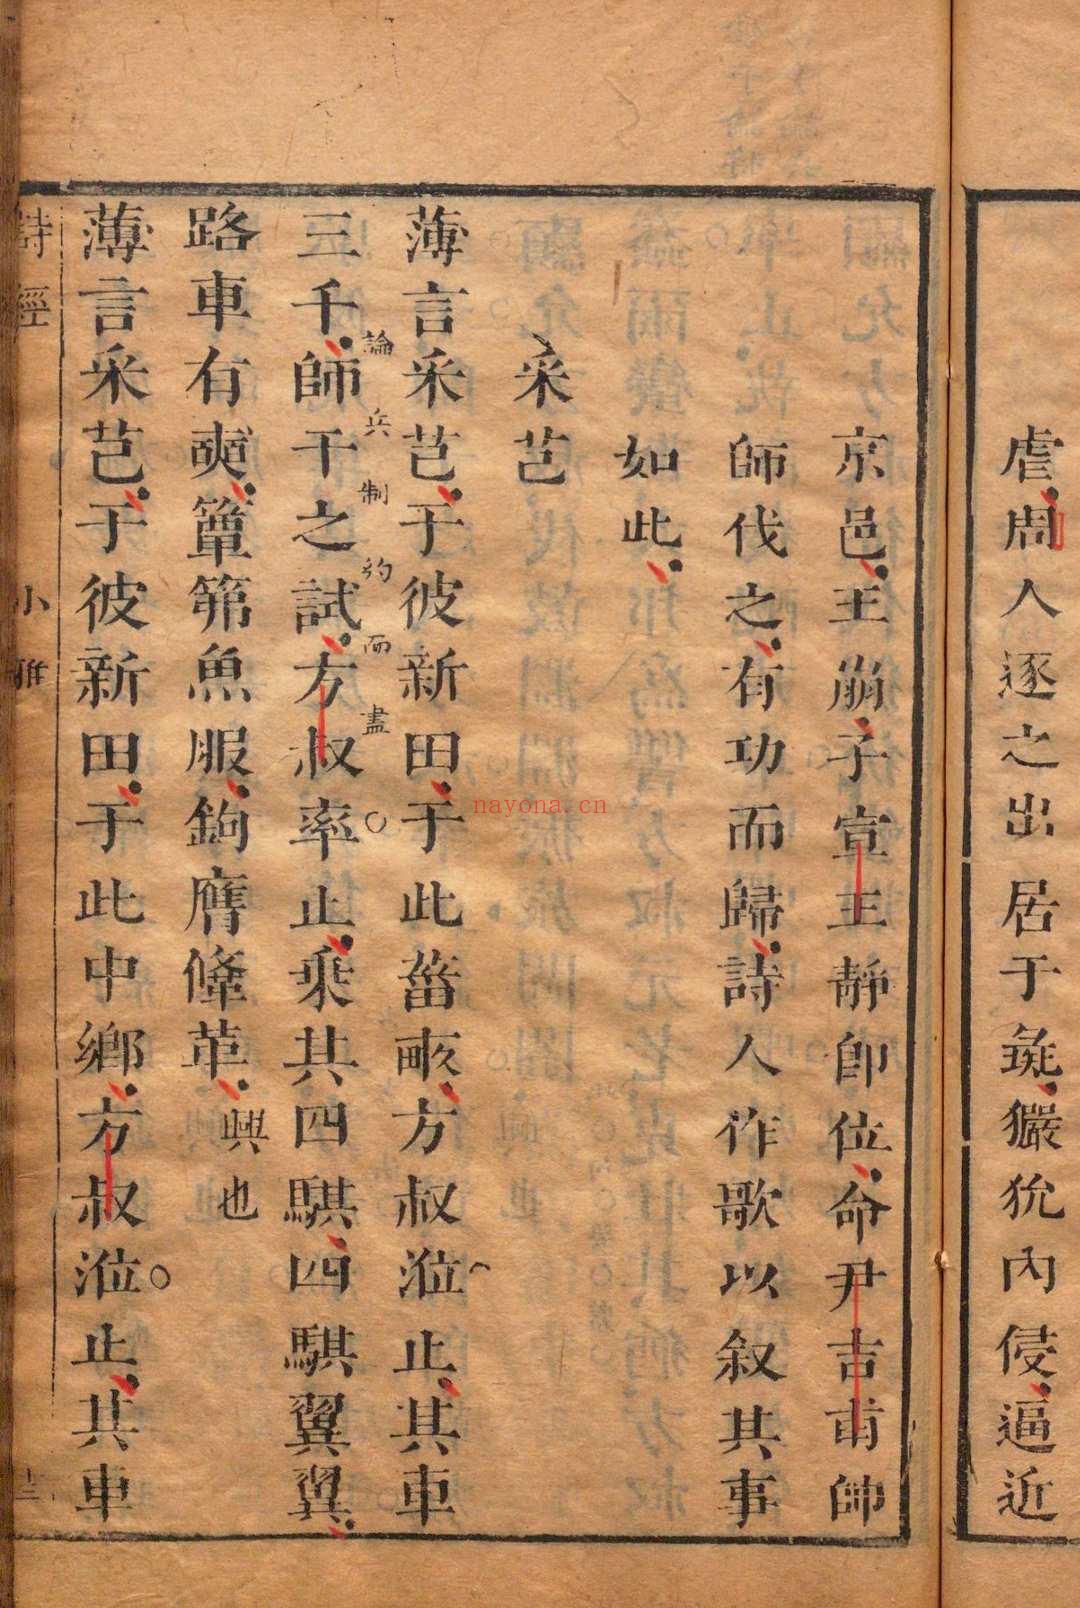 虐周人逐之出居于彘玁狁內侵逼近
京邑王崩子宣王靜卽位命尹吉甫帥
師伐之有功而歸詩人作歌以叙其事
如此
采芑
薄言采芑于彼新田于此菑畝方叔涖止其車
三千師干之試方叔率止乘其四騏四騏翼翼
論兵制約而盡
路車有奭簟笰魚服鉤膺鞗革興也
薄言采芑于彼新田于此中鄉方叔涖止其車
詩經 小雅
nayona.cn